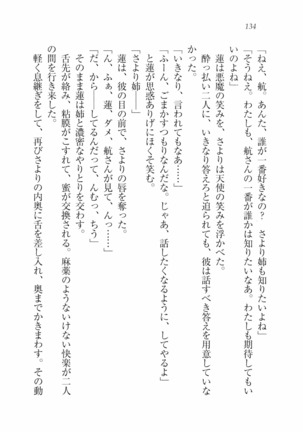 134
「ねえ、航。あんた、誰が一番好きなの？　さより姉も知りたいよね」
「そうねえ。わたしも、航さんの一番が誰かは知りたいなあ。わたしも期待してもい
いのよね」
蓮は悪魔の笑みを、さよりは天使の笑みを浮かべた。
酔っ払い二人に、いきなり答えろと迫られても、彼は話すべき答えを用意していな
かった。
「いきなり、言われてもなあ……」
「ふーん。ごまかすつもりなんだな。じゃあ、話したくなるように、してやるよ」
と蓮が思惑ありげにほくそ笑む。
「さより姉――」
蓮は、彼の目の前で、さよりの唇を奪った。
「ん、ふぁ、蓮、ダメ、航さんが見て、んっ……」
「だ、から――してるんだって、んむっ、ちう」
そのまま蓮は姉と濃密なやりとりを交わす。
舌先が絡み、粘膜がこすれて、蜜が交換される。麻薬のようないけない快楽が二人
の間を行き来した。
軽く息継ぎをして、再びさよりの内奥に舌を差し入れ、奥までかきまわす。その動